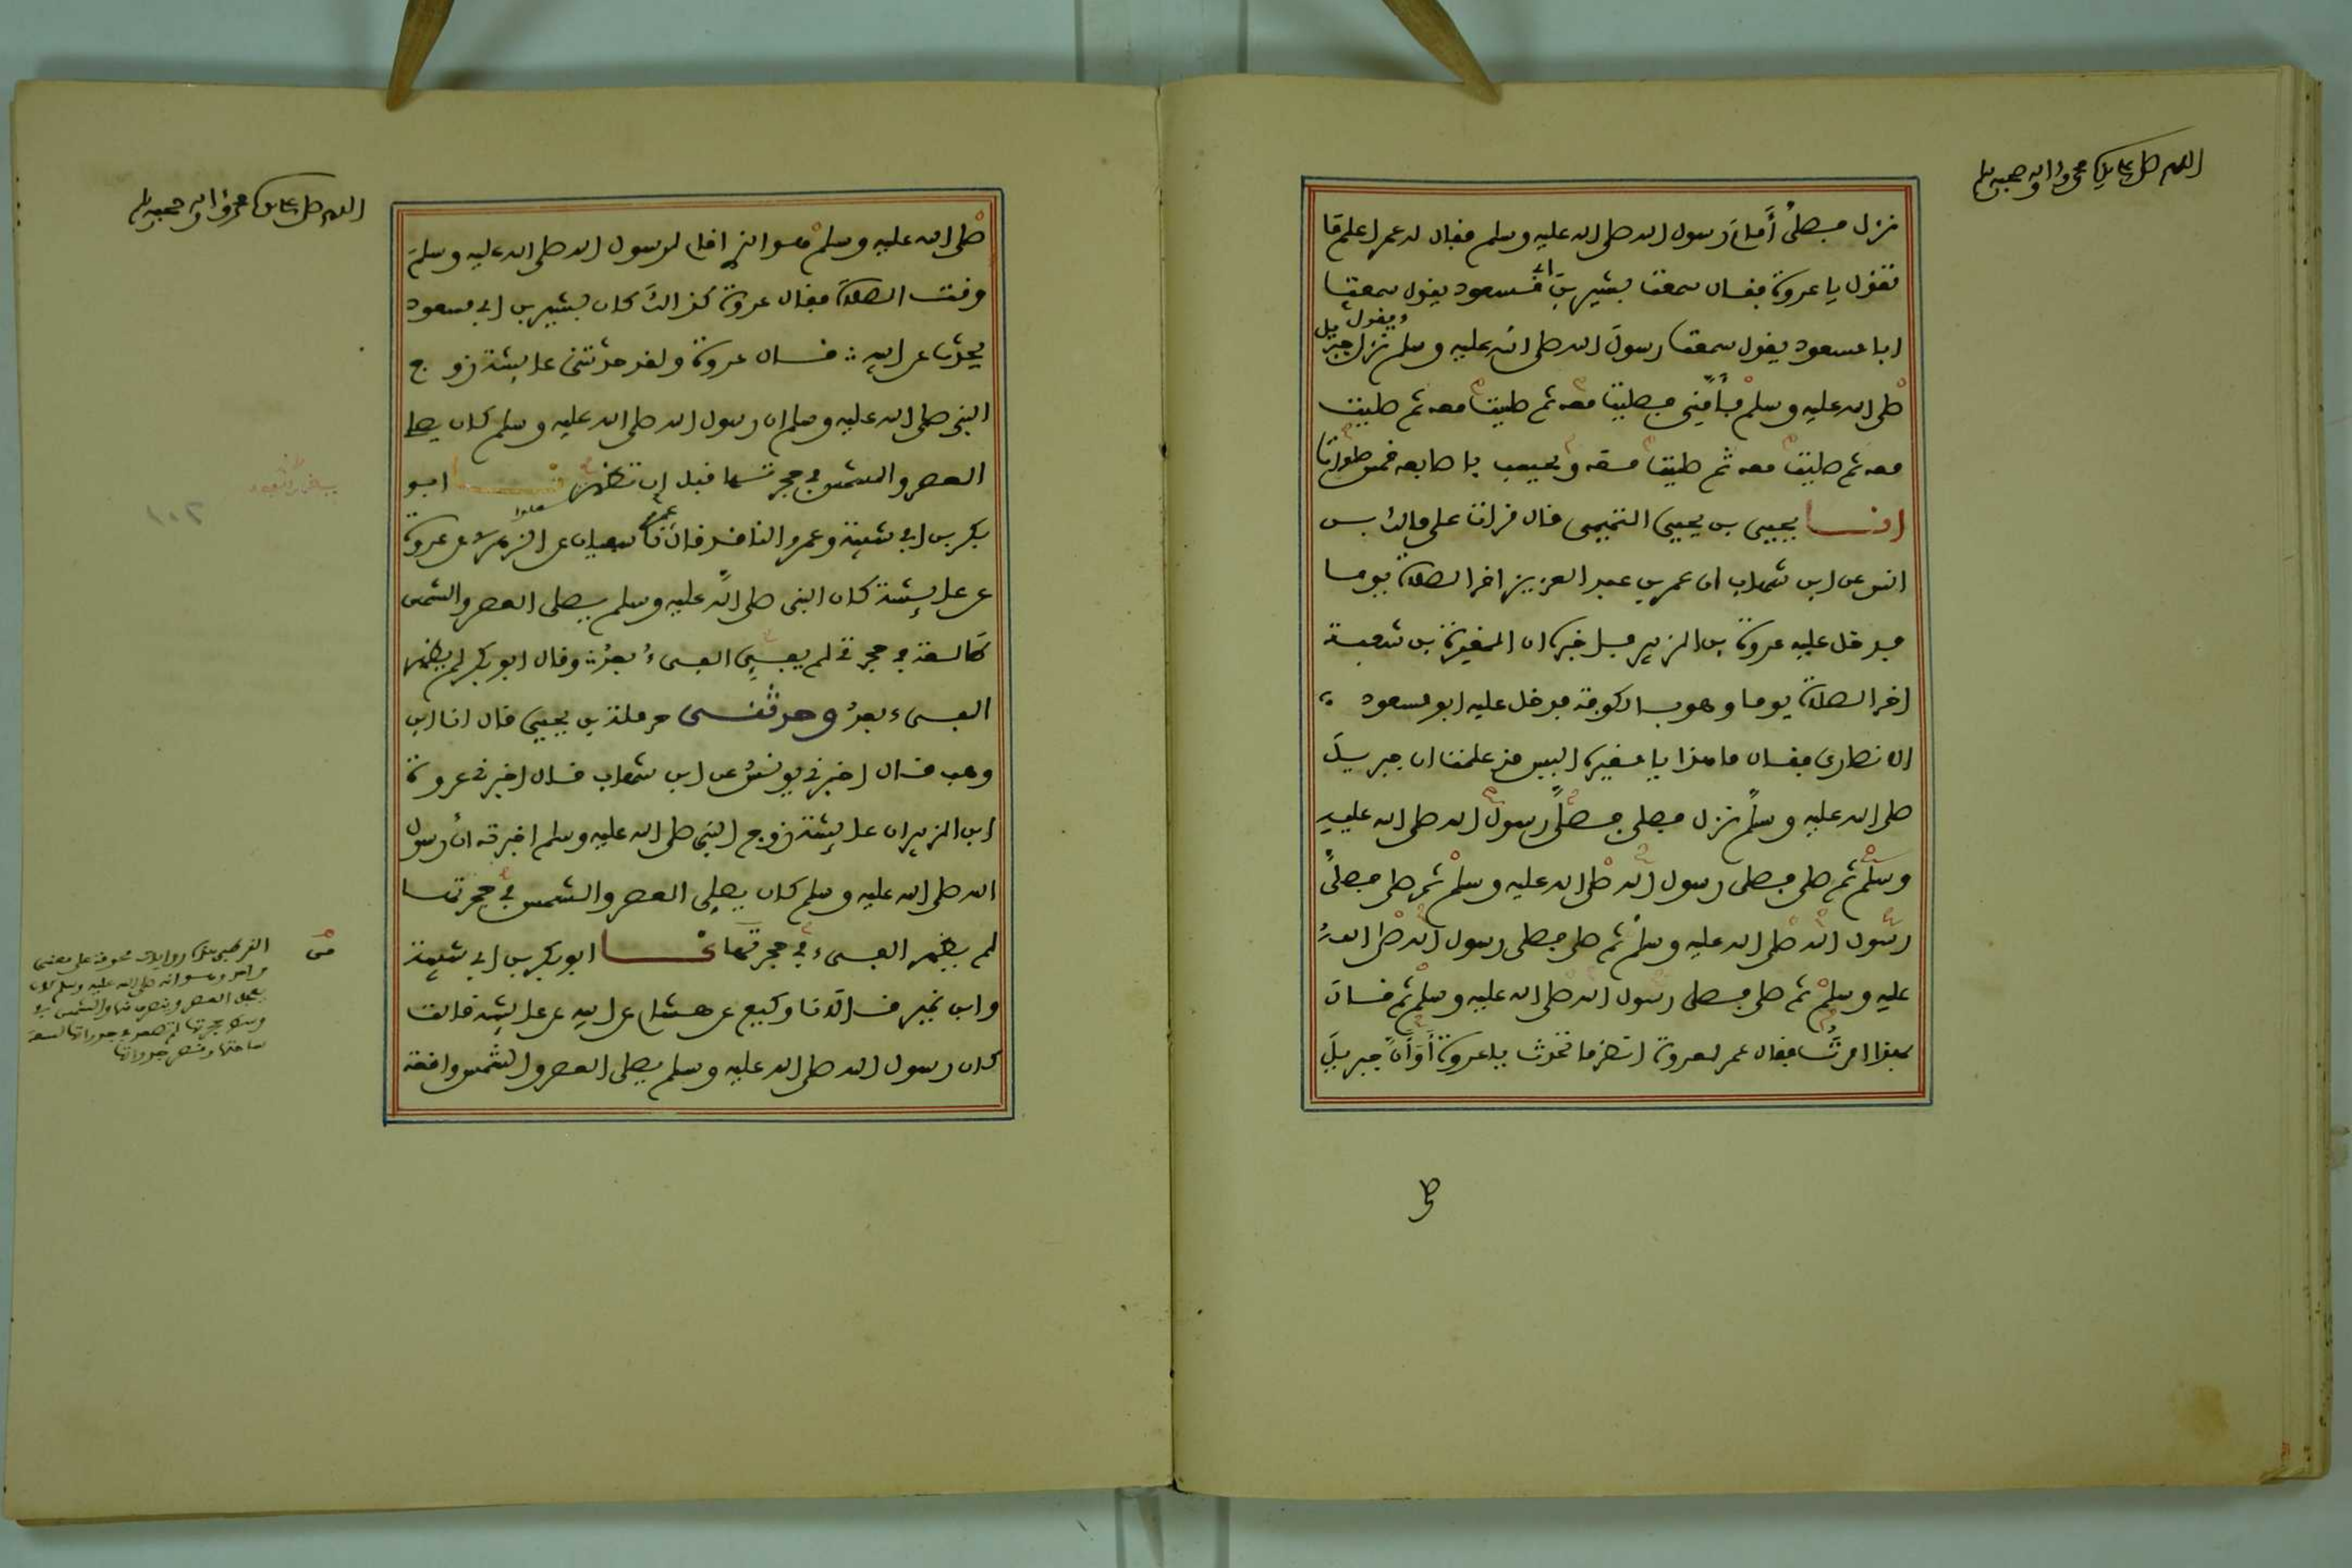 اللهم صل على سيدنا محمد وآله وصحبه وسلم
نزل فصلى أمام رسول الله صلى الله عليه وسلم فقال له عمر اعلم ما
تقول يا عروة فقال سمعت بشير بن ابي مسعود يقول سمعت
ابا مسعود يقول سمعت رسول الله صلى الله عليه وسلم يقول نزل جبريل
صلى الله عليه وسلم فأمني فصليت معه ثم صليت معه ثم صليت
معه ثم صليت معه ثم صليت معه ويحسب باصابعه خمس صلوات
انا يحيى بن يحيى التميمي قال قرات على مالك بن
انس عن ابن شهاب ان عمر بن عبد العزيز اخر الصلاة يوما
فدخل عليه عروة بن الزبير فاخبره ان المغيرة بن شعبة
اخر الصلاة يوما وهو بالكوفة فدخل عليه ابو مسعود
الانصارى فقال ما هذا يا مغيرة اليس قد علمت ان جبريل
صلى الله عليه وسلم نزل فصلى فصلى رسول الله صلى الله عليه
وسلم ثم صلى فصلى رسول الله صلى الله عليه وسلم ثم صلى فصلى
رسول الله صلى الله عليه وسلم ثم صلى فصلى رسول الله صلى الله
عليه وسلم ثم صلى فصلى رسول الله صلى الله عليه وسلم ثم قال
بهذا امرت فقال عمر لعروة انظر ما تحدث يا عروة أو أن جبريل
اللهم صل على سيدنا محمد وآله وصحبه وسلم
صلى الله عليه وسلم هو الذى اقام لرسول الله صلى الله عليه وسلم
وقت الصلاة فقال عروة كذالك كان بشير بن ابي مسعود
يحدث عن ابيه قال عروة ولقد حدثتنى عايشة زوج
النبى صلى الله عليه وسلم ان رسول الله صلى الله عليه وسلم كان يصلى
العصر والشمس فى حجرتها قبل ان تظهر نا ابو
بكر بن ابي شيبة وعمرو الناقد قال نا سفيان عن الزهرى عن عروة
عن عايشة كان النبى صلى الله عليه وسلم يصلى العصر والشمس
طالعة في حجرتى لم يفئ الفيء بعد وقال ابو بكر لم يظهر
الفيء بعد وحدثنى حرملة بن يحيى قال انا ابن
وهب قال اخبرنى يونس عن ابن شهاب قال اخبرنى عروة
ابن الزبير ان عايشة زوج النبى صلى الله عليه وسلم اخبرته ان رسول
الله صلى الله عليه وسلم كان يصلى العصر والشمس فى حجرتها
لم يظهر الفيء فى حجرتها نا ابو بكر بن ابي شيبة
وابن نمير قالا نا وكيع عن هشام عن ابيه عن عايشة قالت
كان رسول الله صلى الله عليه وسلم يصلى العصر والشمس واقعة